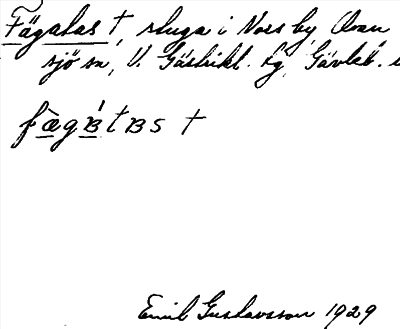 Fägatas †, stuga i Noss by Ovan
sjö sn, V. Gästrikl. hg, Gävleb. l
fægʙ́tʙs †
Emil Gustavsson 1929